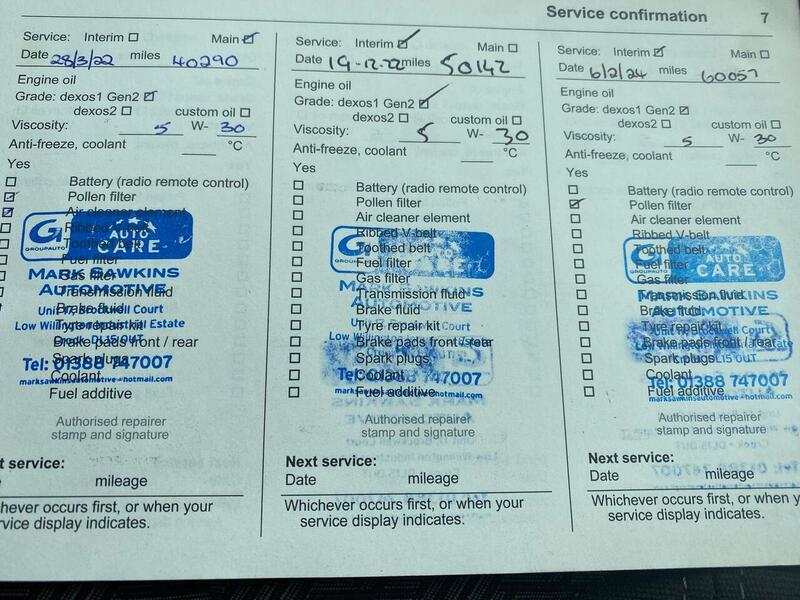 Service confirmation 7
Service: Interim Main
Date 28/3/22 miles 40290
Engine oil
Grade: dexos1 Gen2
dexos2 custom oil
Viscosity: 5 W- 30
Anti-freeze, coolant °C
Yes
Battery (radio remote control)
Pollen filter
Air cleaner element
Ribbed V-belt
Toothed belt
Fuel filter
Gas filter
Transmission fluid
Brake fluid
Tyre repair kit
Brake pads front / rear
Spark plugs
Coolant
Fuel additive
G1 AUTO
GROUPAUTO CARE
MARK SAWKINS
AUTOMOTIVE
Unit 17, Brockwell Court
Low Willington Industrial Estate
Crook DL15 0UT
Tel: 01388 747007
marksawkinsautomotive@hotmail.com
Authorised repairer
stamp and signature
t service:
Date mileage
hever occurs first, or when your
rvice display indicates.
Service: Interim Main
Date 19-12-22 miles 50142
Engine oil
Grade: dexos1 Gen2
dexos2 custom oil
Viscosity: 5 W- 30
Anti-freeze, coolant °C
Yes
Battery (radio remote control)
Pollen filter
Air cleaner element
Ribbed V-belt
Toothed belt
Fuel filter
Gas filter
Transmission fluid
Brake fluid
Tyre repair kit
Brake pads front / rear
Spark plugs
Coolant
Fuel additive
GROUPAUTO
AUTOMOTIVE
Court
Tel: 747007
Authorised repairer
stamp and signature
Next service:
Date mileage
Whichever occurs first, or when your
service display indicates.
Service: Interim Main
Date 6/2/24 miles 60057
Engine oil
Grade: dexos1 Gen2
dexos2 custom oil
Viscosity: 5 W- 30
Anti-freeze, coolant °C
Yes
Battery (radio remote control)
Pollen filter
Air cleaner element
Ribbed V-belt
Toothed belt
Fuel filter
Gas filter
Transmission fluid
Brake fluid
Tyre repair kit
Brake pads front / rear
Spark plugs
Coolant
Fuel additive
AUTO
GROUPAUTO CARE
MARK SAWKINS
AUTOMOTIVE
Brockwell Court
DL15 0UT
Tel: 01388 747007
marksawkinsautomotive@hotmail.com
Authorised repairer
stamp and signature
Next service:
Date mileage
Whichever occurs first, or when
service display indicates.